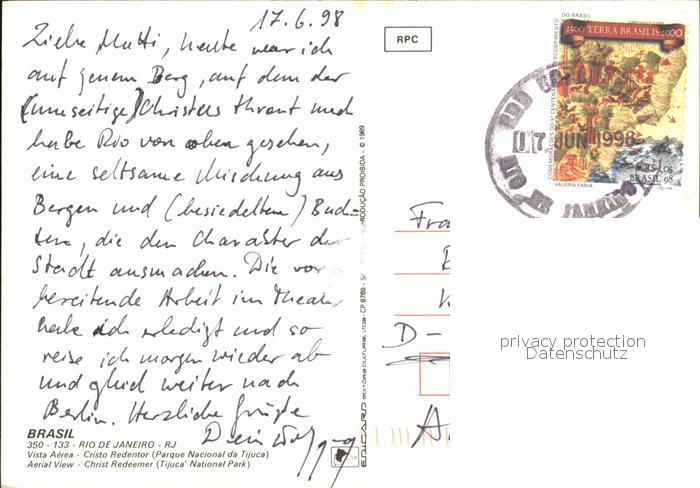 17.6.98
Liebe Mutti, heute war ich
auf jenem Berg, auf dem der
(umseitige) Christus thront und
habe Rio von oben gesehen,
eine seltsame Mischung aus
Bergen und (besiedelten) Buch-
ten, die den Charakter der
Stadt ausmachen. Die vor
bereitende Arbeit im Theater
habe ich erledigt und so
reise ich morgen wieder ab
und gleich weiter nach
Berlin. Herzliche Grüße
Dein Wolfgang
BRASIL
350 - 133 - RIO DE JANEIRO - RJ
Vista Aérea - Cristo Redentor (Parque Nacional da Tijuca)
Aerial View - Christ Redeemer (Tijuca' National Park)
RPC
REPRODUÇÃO PROIBIDA - © 1989
EDICARD EDITORA CULTURAL LTDA - CP 8769 - S
DO BRASIL
1500 TERRA BRASILIS 2000
COMEMORAÇÕES DO 5º CENTENÁRIO DO DESCOBRIMENTO
BRASIL 98
VALERIA FARIA
17. JUN 1998
RIO DE JANEIRO
Fra
D-
privacy protection
Datenschutz